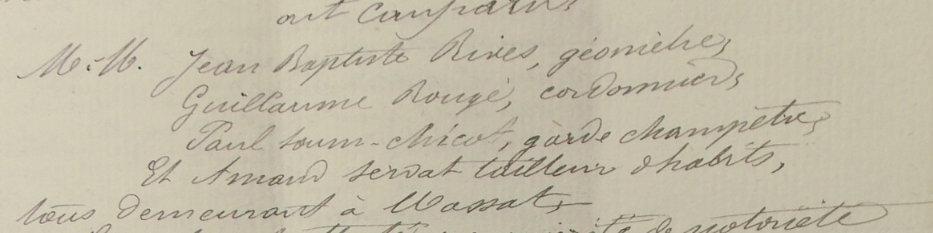 ont comparu
M.M. Jean Baptiste Rives, géomètre,
Guillaume Rougé, cordonnier,
Paul Soum-Chicot, garde champêtre,
Et Amand Servat tailleur d'habits,
tous demeurant à Massat,
notoriété de notoriété